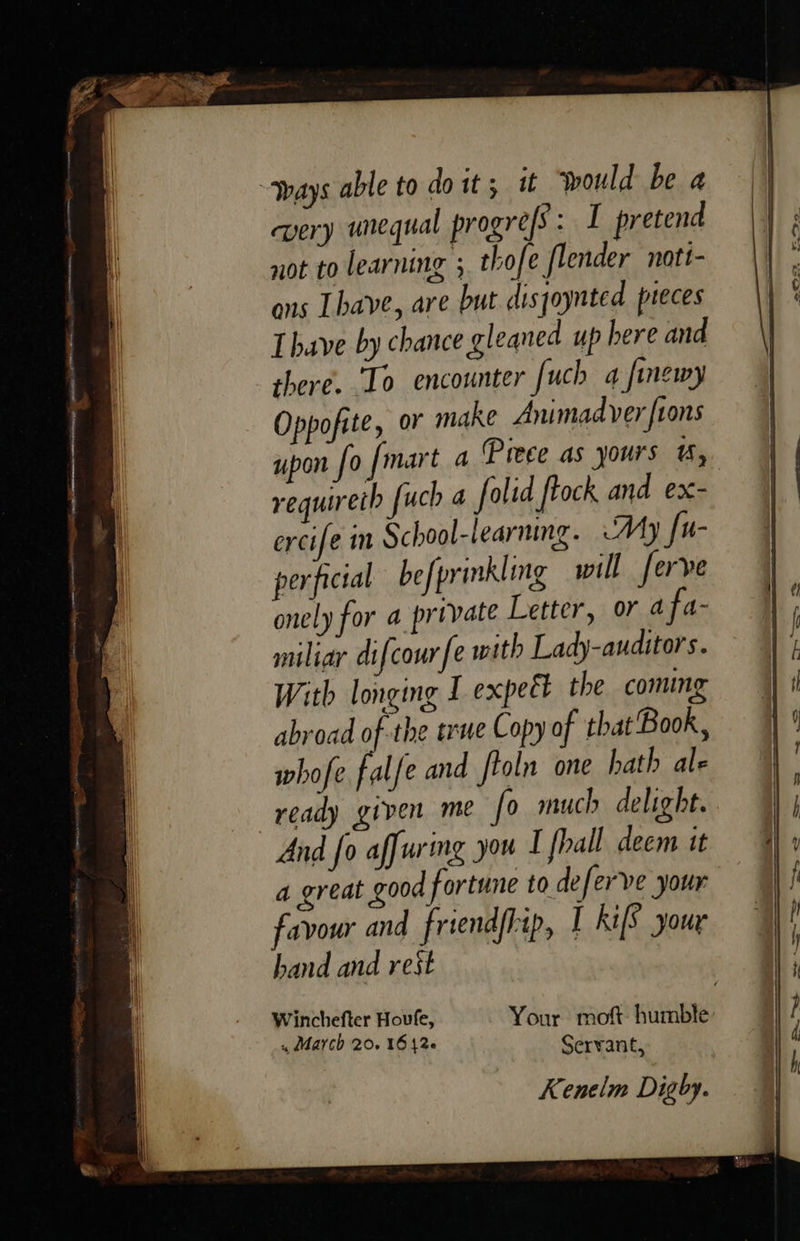 ways able to do it; it would be a
very unequal progreſs: I pretend
not to learning; thoſe ſlender noti-
ons I have, are but disjoynted pieces
I have by chance gleaned up here and
there. To encounter ſuch a ſinewy
Oppoſite, or make Animadverſions
upon ſo ſmart a Piece as yours is,
requireth ſuch a ſolid ſtock and ex-
erciſe in School-learning. My ſu-
perficial beſprinkling will ſerve
onely for a private Letter, or a fa-
miliar diſcourſe with Lady-auditors.
With longing I expect the coming
abroad of the true Copy of that Book,
whoſe falſe and ſtoln one hath al-
ready given me ſo much delight.
And ſo aſſuring you I ſhall deem it
a great good fortune to deſerve your
favour and friendſhip, I kiſs your
hand and rest
Wincheſter Houſe, Your moſt humble
March 20. 1642. Servant,
Kenelm Digby.